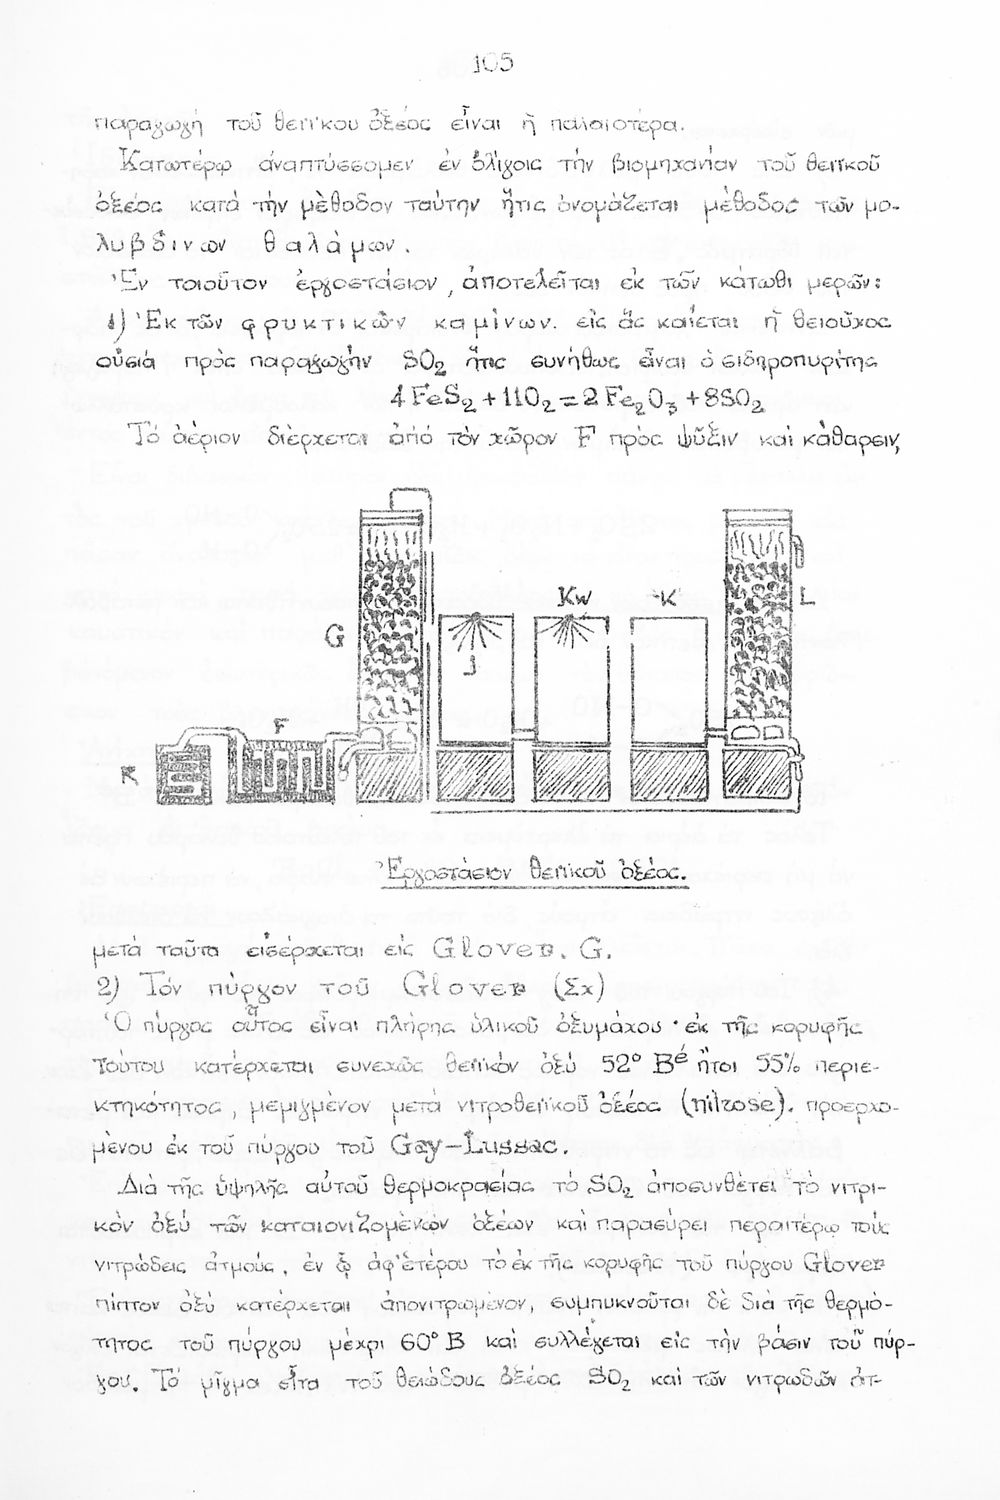 105
παραγωγή τοῦ θεηικου ὀξέος εἶναι ἡ παλαιοτέρα.
Κατωτέρω ἀναπτύσσομεν ἐν ὀλίγοις τήν βιομηχανίαν τοῦ θεηικοῦ
ὀξέος κατά τήν μέθοδον ταύτην ἥτις ὀνομάζεται μέθοδος τῶν μο-
λυβδίνων θαλάμων.
Ἐν τοιοῦτον ἐργοστάσιον, ἀποτελεῖται ἐκ τῶν κάτωθι μερῶν:
1) Ἐκ τῶν φρυκτικῶν καμίνων. εἰς ἅς καίεται ἡ θειοῦχος
οὐσιά πρὸς παραγωγήν SO2 ἥτις συνήθως εἶναι ὁ σιδηροπυρίτης
4FeS2+11O2=2Fe2O3+8SO2
Τό ἀέριον διέρχεται ἀπό τόν χῶρον F πρὸς ψῦξιν καί κάθαρσιν,
G
Kw
K
L
J
F
R
Ἐργοστάσιον θεηικοῦ ὀξέος.
μετά ταῦτα εἰσέρχεται εἰς Glover. G.
2) Τόν πύργον τοῦ Glover (Σχ)
Ὁ πύργος οὗτος εἶναι πλήρης ὑλικοῦ ὀξυμάχου · ἐκ τῆς κορυφῆς
τούτου κατέρχεται συνεχῶς θεηικόν ὀξύ 52° Bé ἤτοι 55% περιε-
κτηκότητος, μεμιγμένον μετά νιτροθεηικοῦ ὀξέος (nitrose). προερχο-
μένου ἐκ τοῦ πύργου τοῦ Gay-Lussac.
Διά τῆς ὑψηλῆς αὐτοῦ θερμοκρασίας τό SO2 ἀποσυνθέτει τό νιτρι-
κόν ὀξύ τῶν καταιονιζομένων ὀξέων καί παρασύρει περαιτέρω τούς
νιτρώδεις ἀτμούς, ἐν ᾧ ἀφ'ἑτέρου τό ἐκ τῆς κορυφῆς τοῦ πύργου Glover
πίπτον ὀξύ κατέρχεται ἀπονιτρωμένον, συμπυκνοῦται δέ διά τῆς θερμό-
τητος τοῦ πύργου μέχρι 60° B καί συλλέγεται εἰς τήν βάσιν τοῦ πύρ-
γου. Τό μῖγμα εἶτα τοῦ θειώδους ὀξέος SO2 καί τῶν νιτρωδῶν ἀτ-